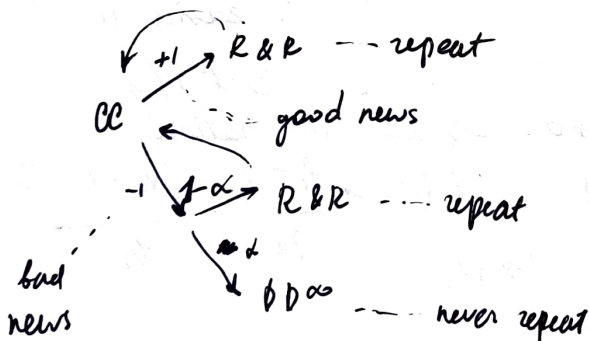 +1 R & R --- repeat
CC --- good news
-1 1-α R & R ---- repeat
α
DD∞ ---- never repeat
bad
news